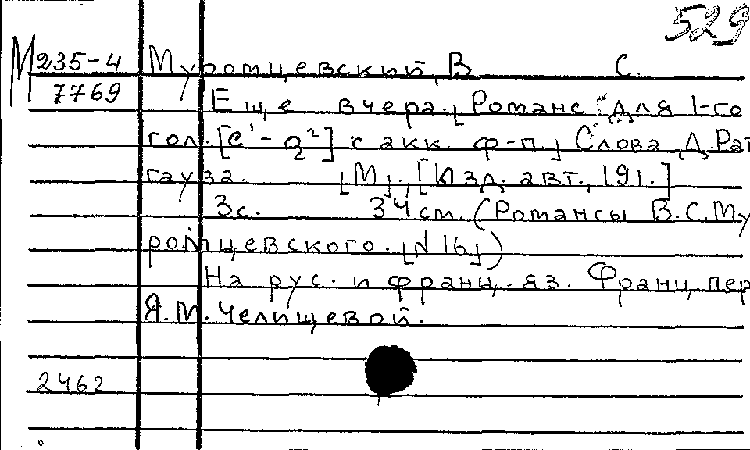 529
М 235-4 Муромцевский, В. С.
7769 Еще вчера. [Романс. Для 1-го
гол. [e¹-g²] с акк. ф-п.] Слова Д. Рат
гауза. [М], [Изд. авт., 191.]
3с. 34 см. (Романсы В.С. Му
ромцевского. [N 16])
На рус. и франц. яз. Франц. пер
Я. М. Челищевой.
2462